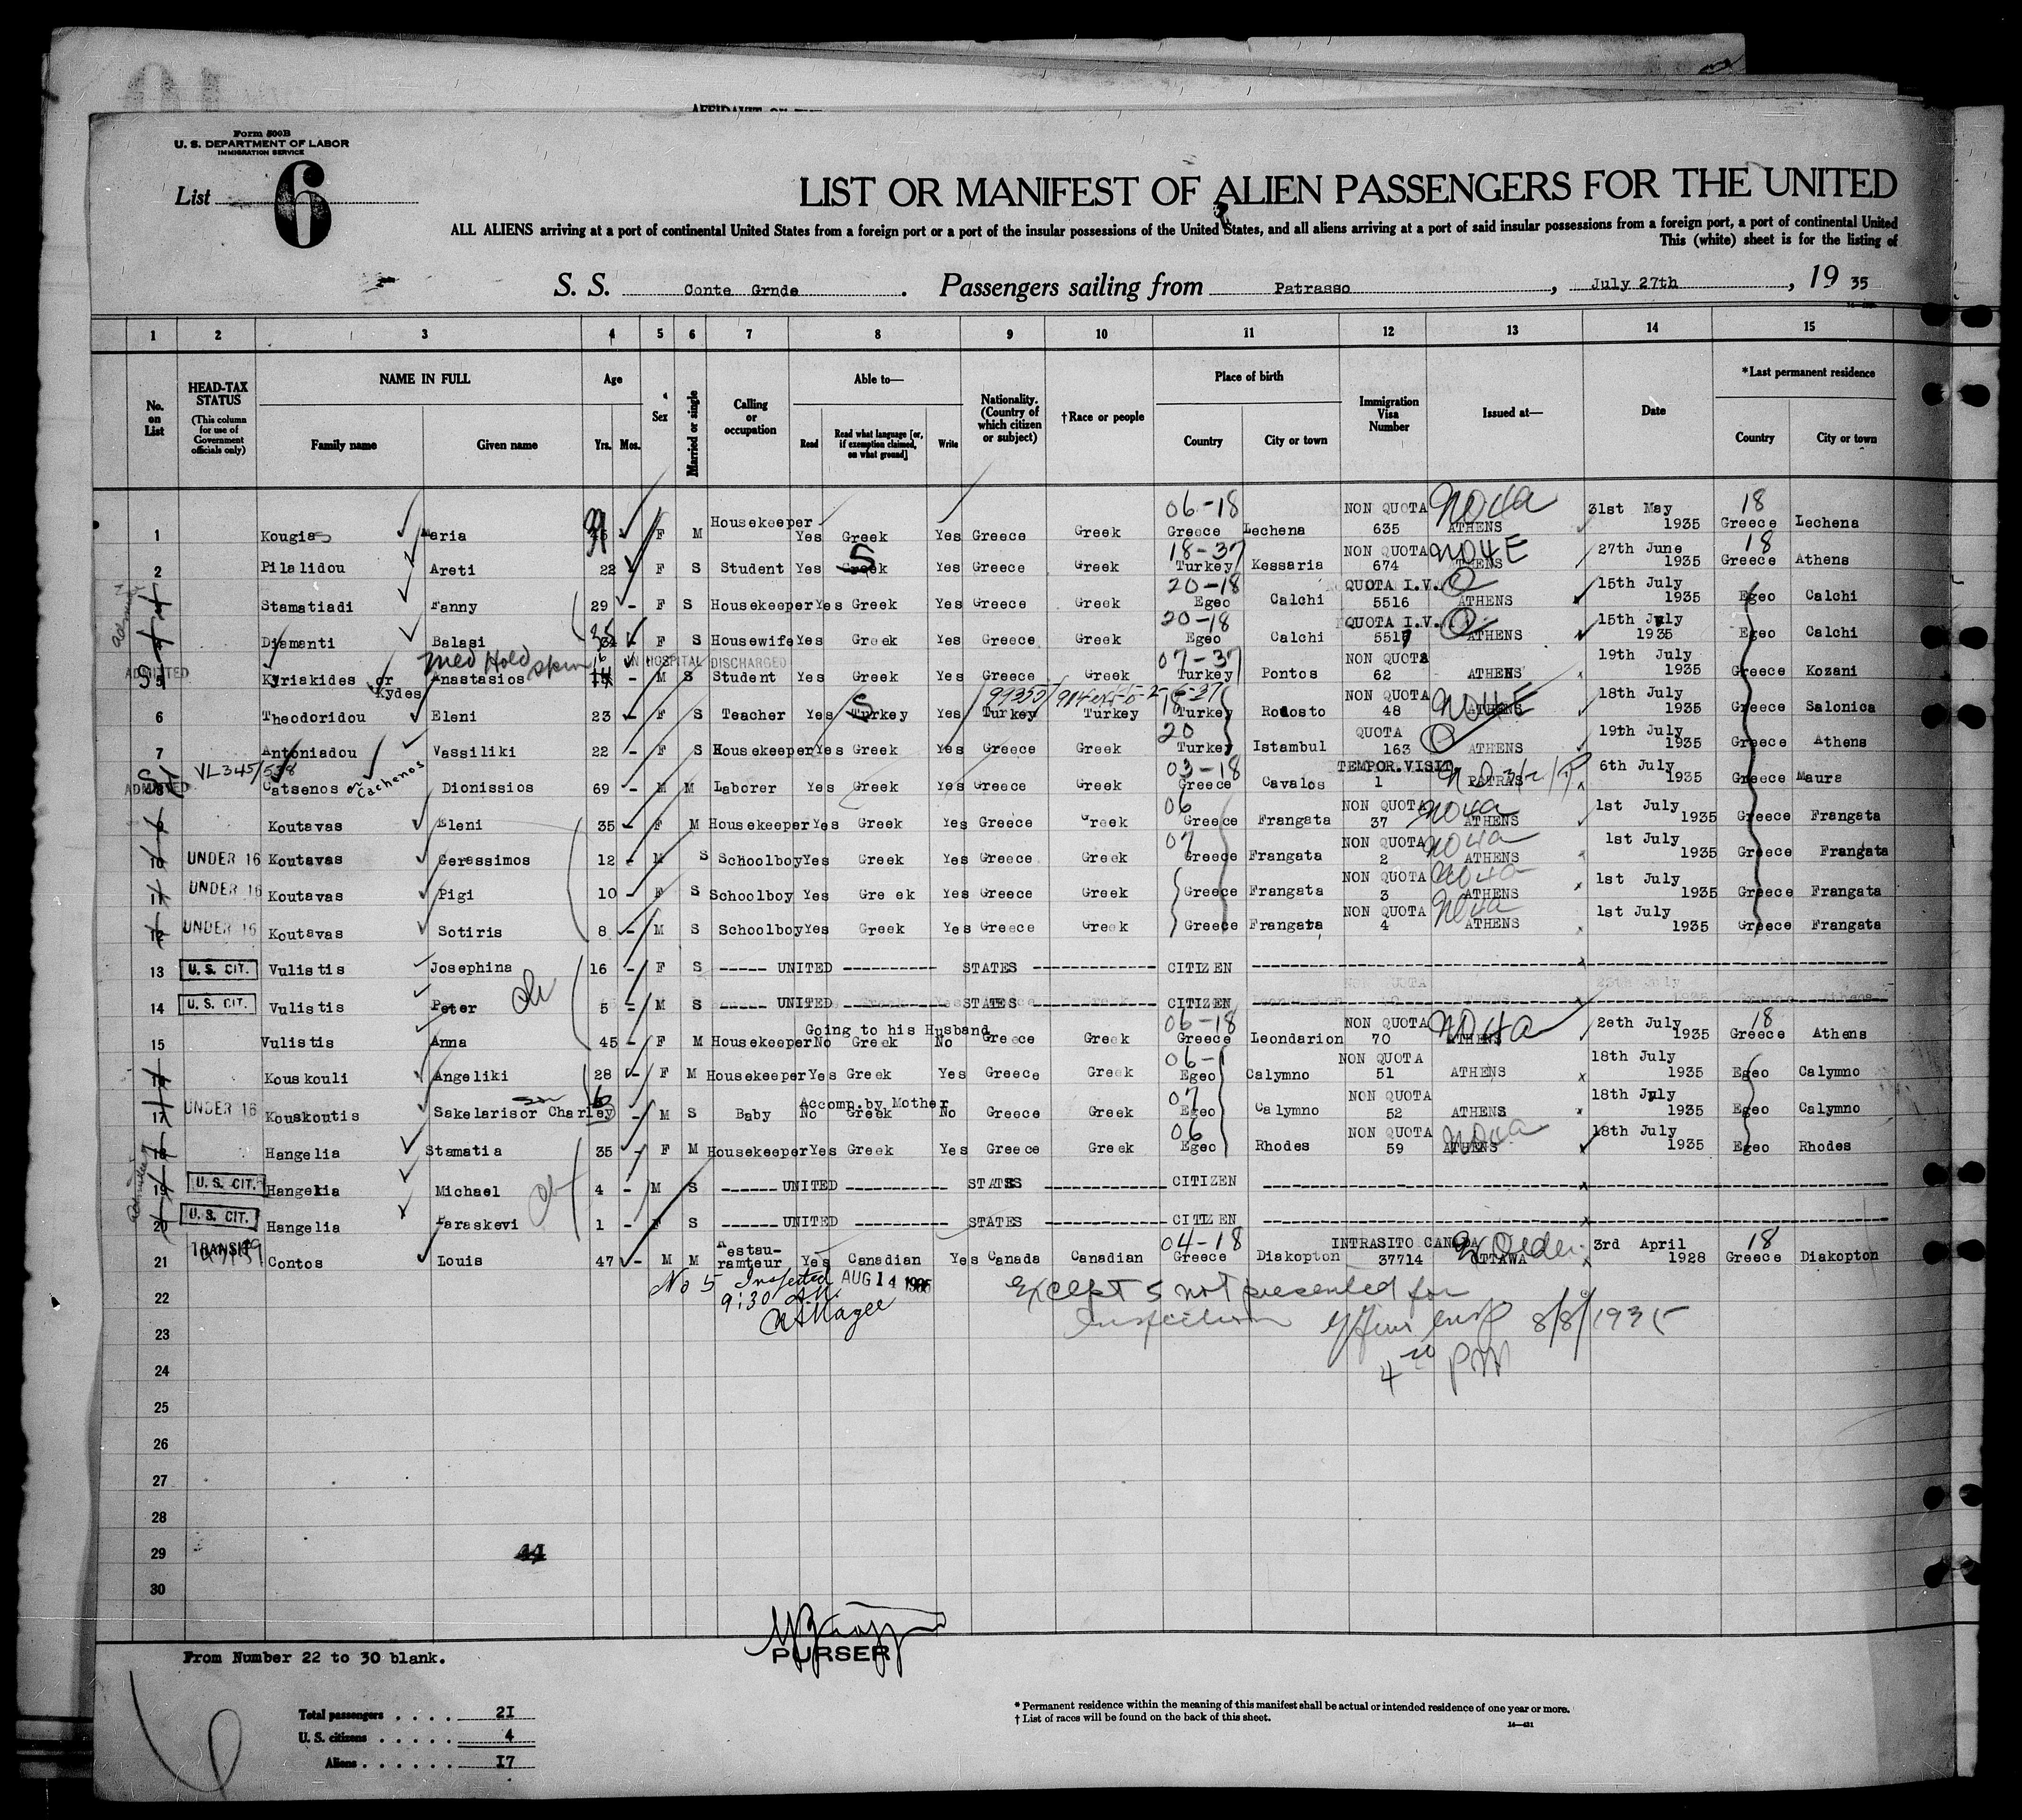 AFFIDAVIT
Form 500B
U. S. DEPARTMENT OF LABOR
IMMIGRATION SERVICE
List 6
LIST OR MANIFEST OF ALIEN PASSENGERS FOR THE UNITED
ALL ALIENS arriving at a port of continental United States from a foreign port or a port of the insular possessions of the United States, and all aliens arriving at a port of said insular possessions from a foreign port, a port of continental United
This (white) sheet is for the listing of
S. S. Conte Grnde . Passengers sailing from Patrasso , July 27th , 19 35
1 2 3 4 5 6 7 8 9 10 11 12 13 14 15
No. on List
HEAD-TAX STATUS (This column for use of Government officials only)
NAME IN FULL Family name Given name
Age Yrs. Mos.
Sex
Married or single
Calling or occupation
Able to— Read Read what language [or, if exemption claimed, on what ground] Write
Nationality. (Country of which citizen or subject)
†Race or people
Place of birth Country City or town
Immigration Visa Number
Issued at—
Date
*Last permanent residence Country City or town
06-18 NON QUOTA NO4a 31st May 18
1 Kougias Maria F M Housekeeper Yes Greek Yes Greece Greek Greece Lechena 635 ATHENS 1935 Greece Lechena
18-37 NON QUOTA NO4E 27th June 18
2 Pilalidou Areti 22 F S Student Yes Greek S Yes Greece Greek Turkey Kessaria 674 ATHENS 1935 Greece Athens
20-18 QUOTA I.V. 15th July
3 Stamatiadi Fanny 29 - F S Housekeeper Yes Greek Yes Greece Greek Egeo Calchi 5516 ATHENS 1935 Egeo Calchi
20-18 QUOTA I.V. 15th July
4 Diamanti Balasi 34 - F S Housewife Yes Greek Yes Greece Greek Egeo Calchi 5517 ATHENS 1935 Egeo Calchi
Med Hold IN HOSPITAL DISCHARGED 07-37 NON QUOTA 19th July
ADMITTED 5 Kyriakides or Kydes Anastasios 16 - M S Student Yes Greek Yes Greece Greek Turkey Pontos 62 ATHENS 1935 Greece Kozani
18 NON QUOTA NO4E 18th July
6 Theodoridou Eleni 23 - F S Teacher Yes Turkey S Yes Turkey Turkey Turkey Rodosto 48 ATHENS 1935 Greece Salonica
20 QUOTA 19th July
7 Antoniadou Vassiliki 22 - F S Housekeeper Yes Greek Yes Greece Greek Turkey Istambul 163 ATHENS 1935 Greece Athens
VL 345/538 03-18 TEMPOR.VISIT. 6th July
ADMITTED 8 Catsenos or Cachenos Dionissios 69 - M M Laborer Yes Greek Yes Greece Greek Greece Cavalos 1 PATRAS 1935 Greece Maura
06 NON QUOTA NO4a 1st July
9 Koutavas Eleni 35 - F M Housekeeper Yes Greek Yes Greece Greek Greece Frangata 37 ATHENS 1935 Greece Frangata
07 NON QUOTA NO4a 1st July
10 UNDER 16 Koutavas Gerassimos 12 - M S Schoolboy Yes Greek Yes Greece Greek Greece Frangata 2 ATHENS 1935 Greece Frangata
NON QUOTA NO4a 1st July
11 UNDER 16 Koutavas Pigi 10 - F S Schoolboy Yes Gre ek Yes Greece Greek Greece Frangata 3 ATHENS 1935 Greece Frangata
NON QUOTA NO4a 1st July
12 UNDER 16 Koutavas Sotiris 8 - M S Schoolboy Yes Greek Yes Greece Greek Greece Frangata 4 ATHENS 1935 Greece Frangata
13 U. S. CIT. Vulistis Josephina 16 - F S ----- UNITED ---------- STATES ------------- CITIZEN
14 U. S. CIT. Vulistis Peter 5 - M S ----- UNITED ---------- STATES ------------- CITIZEN
Going to his Husband 06-18 NON QUOTA NO4a 20th July 18
15 Vulistis Anna 45 - F M Housekeeper No Greek No Greece Greek Greece Leondarion 70 ATHENS 1935 Greece Athens
06- NON QUOTA 18th July
16 Kouskouli Angeliki 28 - F M Housekeeper Yes Greek Yes Greece Greek Egeo Calymno 51 ATHENS 1935 Egeo Calymno
Accomp.by Mother 07 NON QUOTA 18th July
17 UNDER 16 Kouskoutis Sakelarisor Charley - M S Baby No Greek No Greece Greek Egeo Calymno 52 ATHENS 1935 Egeo Calymno
06 NON QUOTA NO4a 18th July
18 Hangelia Stamatia 35 - F M Housekeeper Yes Greek Yes Greece Greek Egeo Rhodes 59 ATHENS 1935 Egeo Rhodes
19 U. S. CIT. Hangelia Michael 4 - M S ------ UNITED ----------- STATES ------------- CITIZEN
20 U. S. CIT. Hangelia Paraskevi 1 - F S ------ UNITED ---------- STATES ------------ CITIZEN
TRANSIT 04-18 INTRASITO CANADA 3rd April 18
21 Contos Louis 47 - M M Restauramteur Yes Canadian Yes Canada Canadian Greece Diakopton 37714 OTTAWA 1928 Greece Diakopton
No 5 Inspected AUG 14 1935
9:30 AM.
Except 5 not presented for
Inspection 8/8/1935
4 PM
22
23
24
25
26
27
28
29 44
30
PURSER
From Number 22 to 30 blank.
Total passengers . . . . 21
U. S. citizens . . . . . 4
Aliens . . . . . . 17
* Permanent residence within the meaning of this manifest shall be actual or intended residence of one year or more.
† List of races will be found on the back of this sheet.
14—421